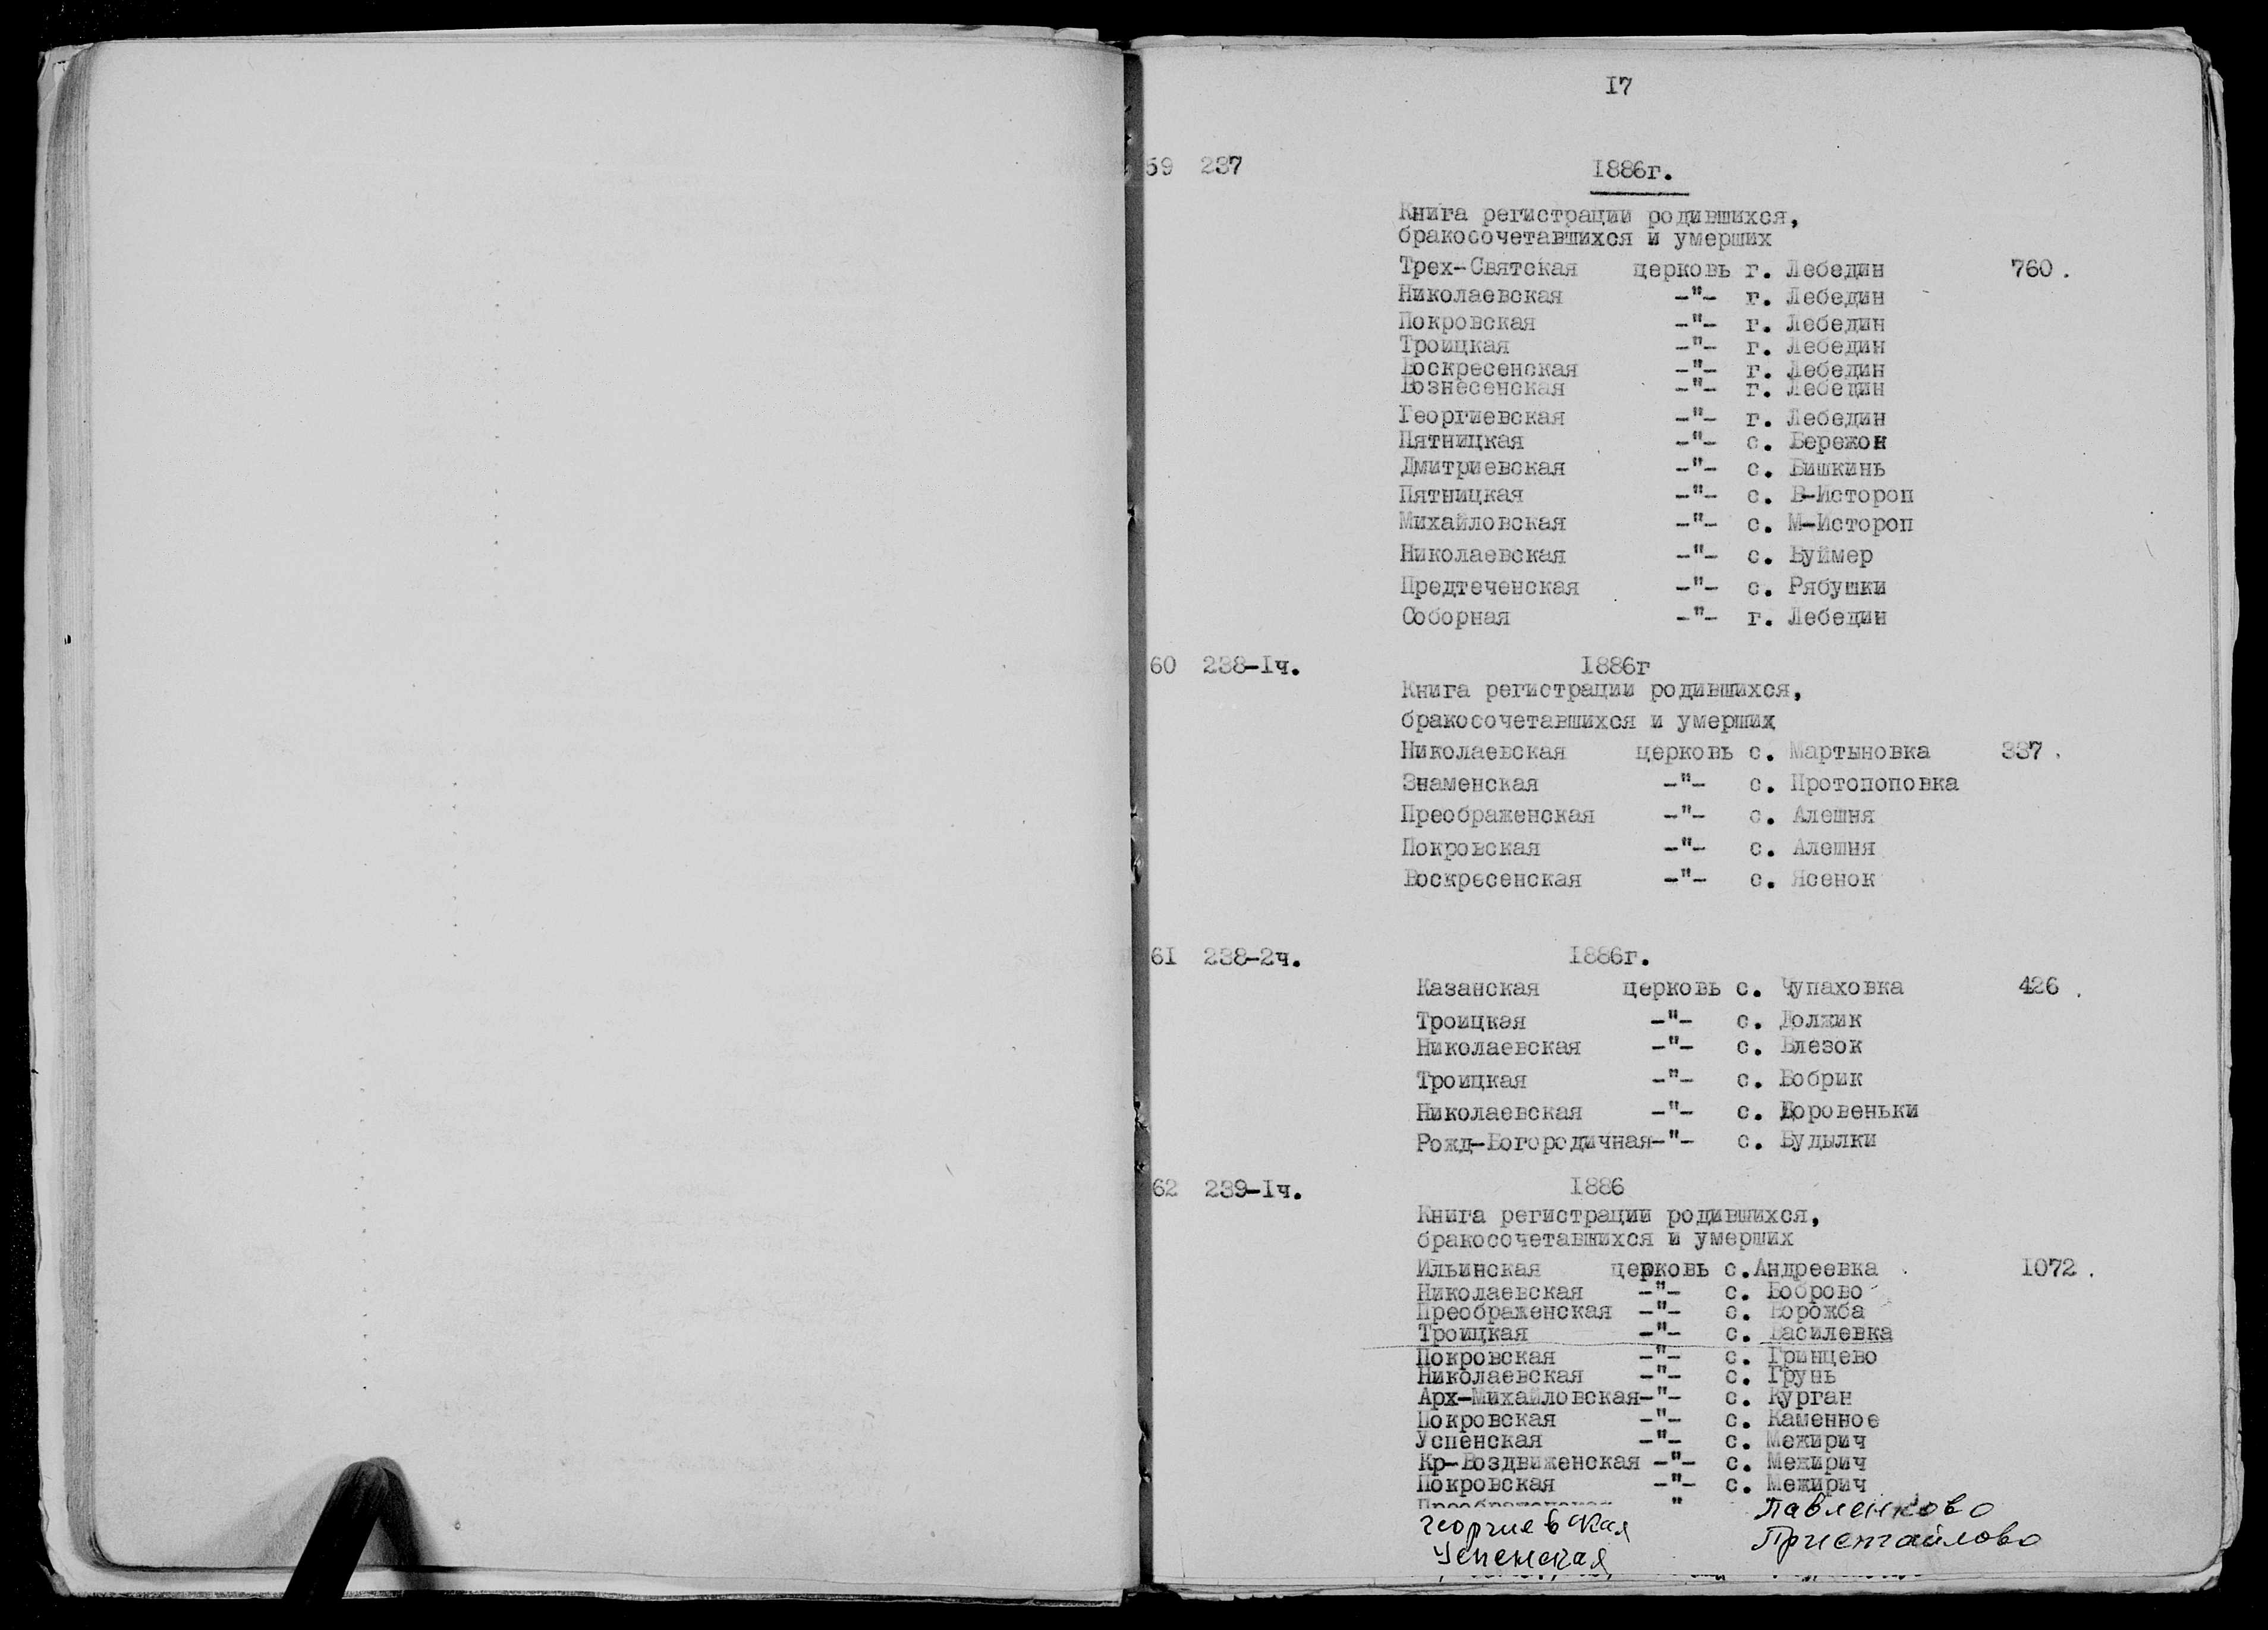 I7
59 237 I886г.
Книга регистрации родившихся,
бракосочетавшихся и умерших
Трех-Святская церковь г. Лебедин 760.
Николаевская -"- г. Лебедин
Покровская -"- г. Лебедин
Троицкая -"- г. Лебедин
Воскресенская -"- г. Лебедин
Вознесенская -"- г. Лебедин
Георгиевская -"- г. Лебедин
Пятницкая -"- с. Бережок
Дмитриевская -"- с. Бишкинь
Пятницкая -"- с. В-Истороп
Михайловская -"- с. М-Истороп
Николаевская -"- с. Буймер
Предтеченская -"- с. Рябушки
Соборная -"- г. Лебедин
60 238-Iч. I886г
Книга регистрации родившихся,
бракосочетавшихся и умерших
Николаевская церковь с. Мартыновка 337.
Знаменская -"- с. Протопоповка
Преображенская -"- с. Алешня
Покровская -"- с. Алешня
Воскресенская -"- с. Ясенок
6I 238-2ч. I886г.
Казанская церковь с. Чупаховка 426.
Троицкая -"- с. Должик
Николаевская -"- с. Влезок
Троицкая -"- с. Бобрик
Николаевская -"- с. Боровеньки
Рожд-Богородичная-"- с. Будылки
62 239-Iч. I886
Книга регистрации родившихся,
бракосочетавшихся и умерших
Ильинская церковь с.Андреевка I072.
Николаевская -"- с. Боброво
Преображенская -"- с. Ворожба
Троицкая -"- с. Василевка
Покровская -"- с. Гринцево
Николаевская -"- с. Грунь
Арх-Михайловская-"- с. Курган
Покровская -"- с. Каменное
Успенская -"- с. Межирич
Кр-Воздвиженская -"- с. Межирич
Покровская -"- с. Межирич
Преображенская " Павленково
Георгиевская Пристайлово
Успенская